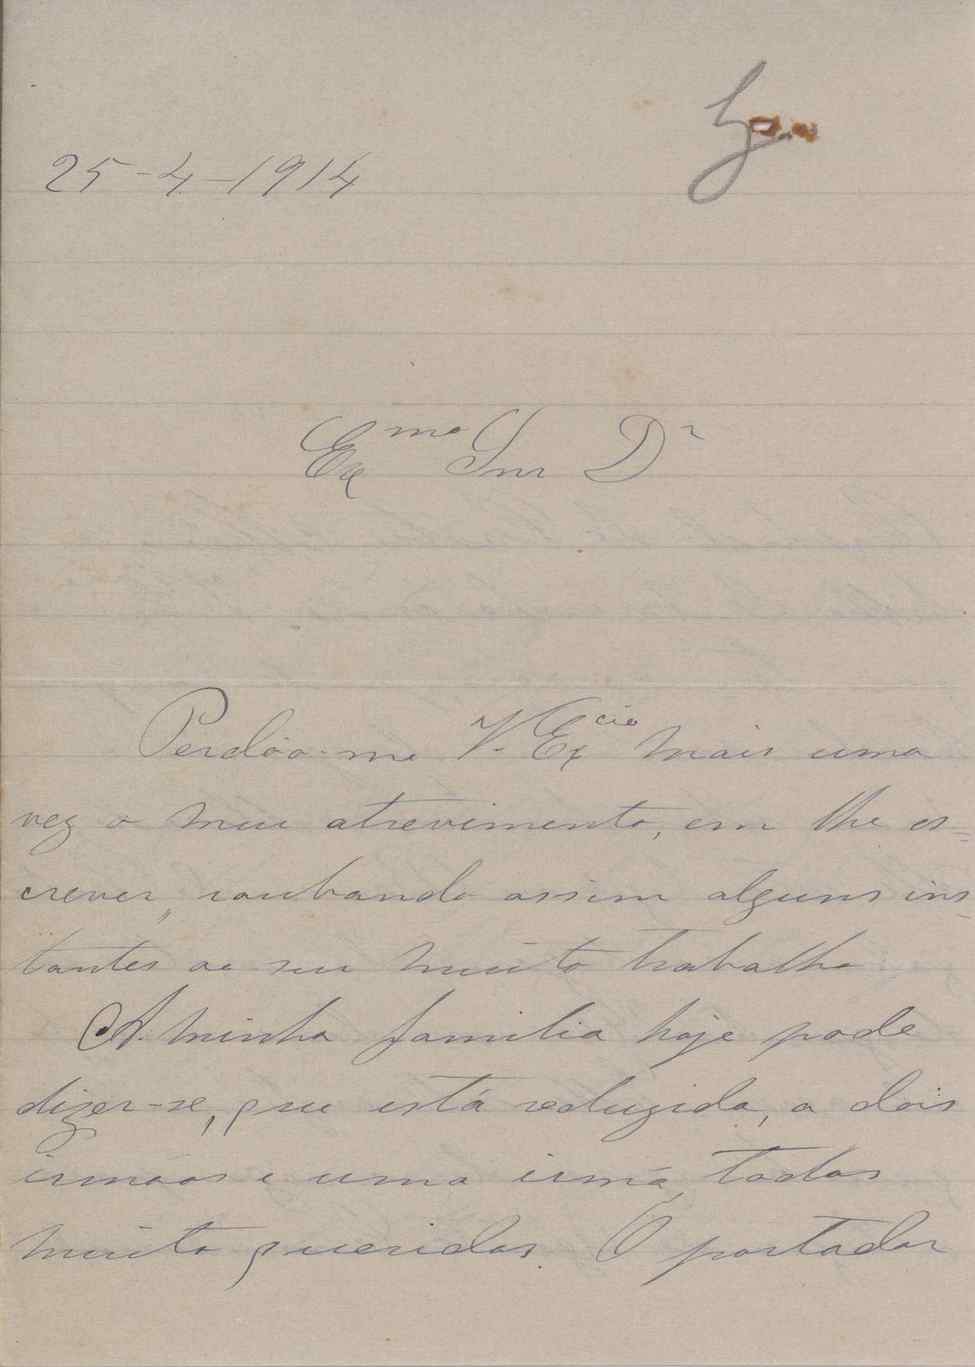 25-4-1914
Exmo Snr Dr
Perdôa-me V. Excia mais uma
vez o meu atrevimento, em lhe es=
crever, roubando assim alguns ins=
tantes ao seu muito trabalho
A minha familia hoje pode
dizer-se, que está reduzida, a dois
irmãos e uma irmã, todos
muito queridos. O portador